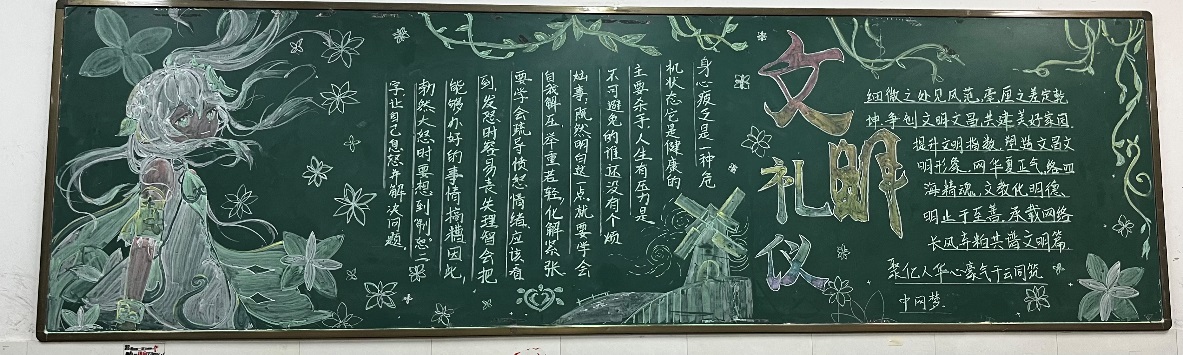 文明
礼仪
身心疲乏是一种危
机状态它是健康的
主要杀手,人生有压力是
不可避免的谁还没有个烦
灿事,既然明白这一点就要学会
自我解压,举重若轻,化解紧张
要学会疏导愤怒情绪,应该看
到,发怒时容易丧失理智会把
能够办好的事情搞糟因此,
勃然大怒时要想到"制怒"二
字让自己息怒,并解决问题
细微之处见风范,毫厘之差定乾
坤,争创文明文昌,共建美好家园
提升文明指数,塑造文昌文
明形象,网华夏正气,络四
海精魂,文教化明德,
明止于至善,承载网络
长风,共谱文明篇
聚亿人华心豪气于云同筑
中网梦